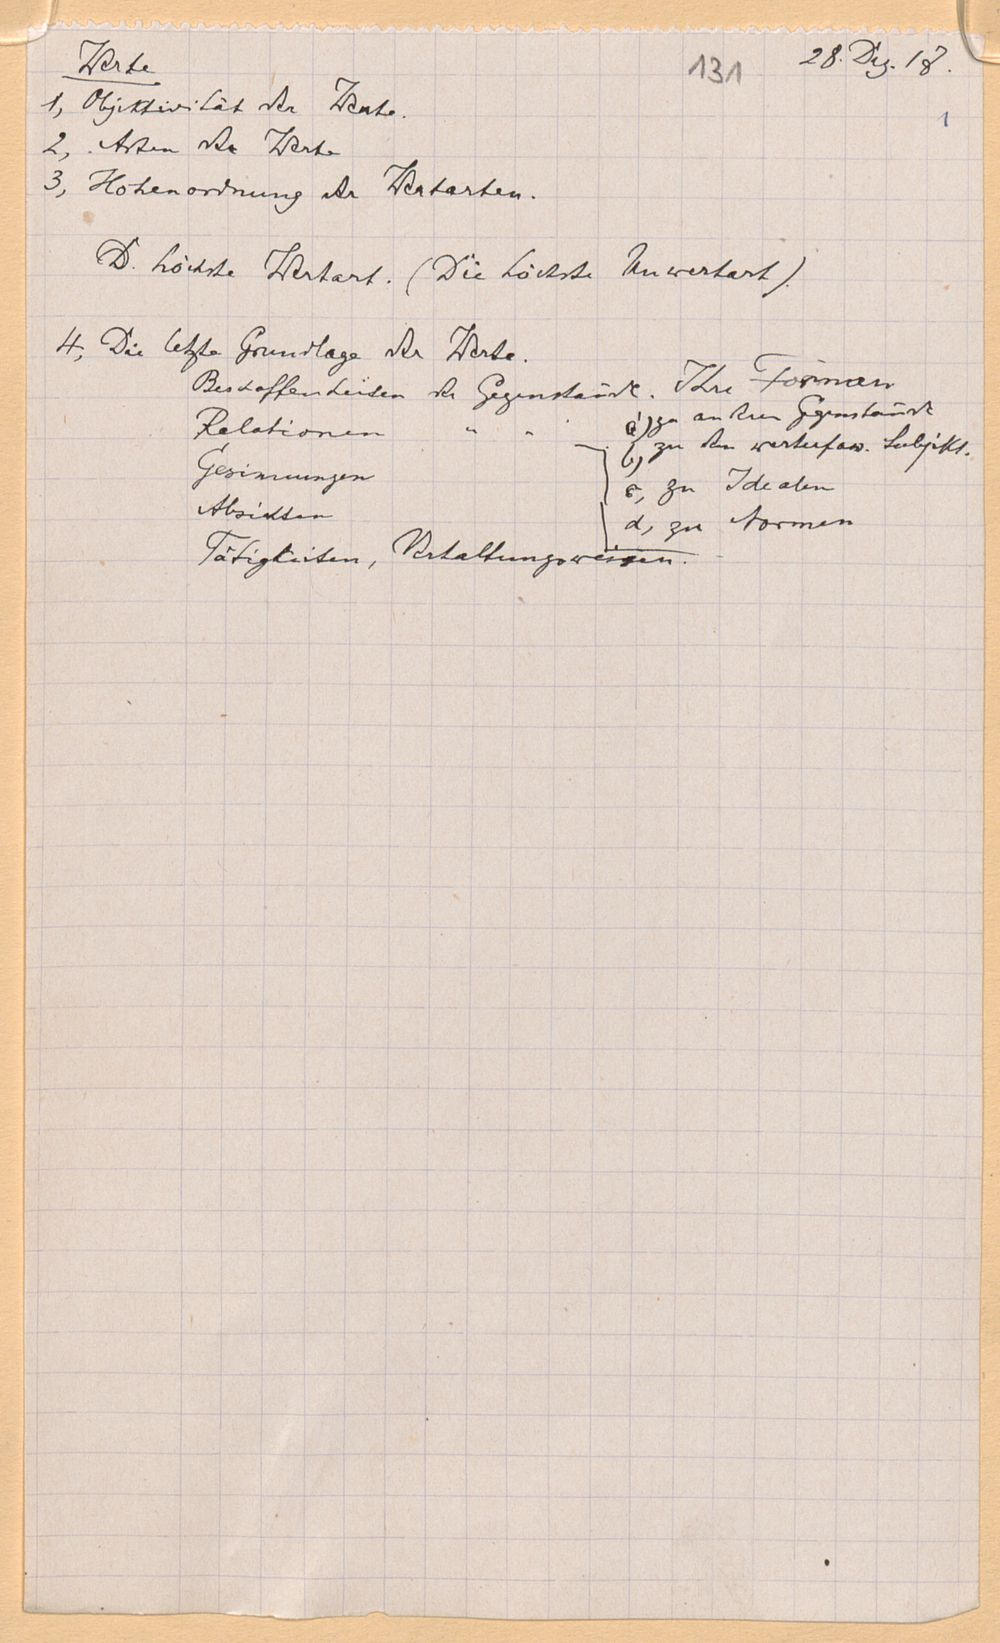 Werte
131
28. Dez. 18.
1
1, Objektivität der Werte.
2, Arten der Werte
3, Höhenordnung der Wertarten.
D. höchste Wertart. (Die höchste Unwertart).
4, Die letzte Grundlage der Werte.
Beschaffenheiten der Gegenstände. Ihre Formen
Relationen " " a) zu anderen Gegenständen
b) zu dem werterfass. Subjekt.
Gesinnungen
c, zu Idealen
Absichten
d, zu Normen
Tätigkeiten, Verhaltungsweisen.